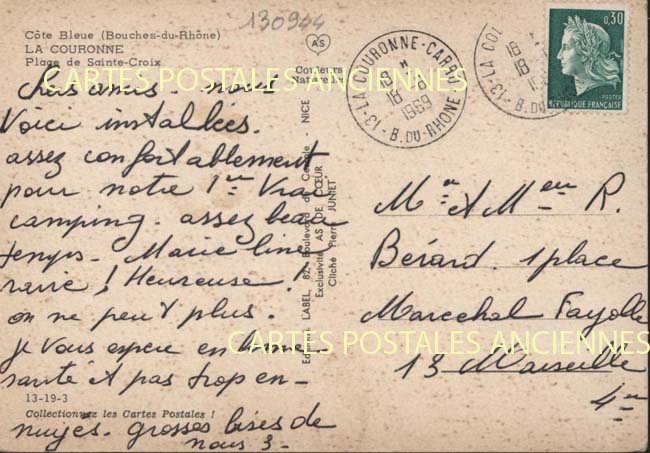 130944
Côte Bleue (Bouches-du-Rhône)
LA COURONNE
Plage de Sainte-Croix
AS
Couleurs
Naturelles
LA COURONNE-CARRO
18 H
18-8
1969
13 - B. DU-RHONE
LA COU
18
18
13 - B. DU
0,30
POSTES
REPUBLIQUE FRANÇAISE
CARTES POSTALES ANCIENNES
Chers amis. nous
Voici installées.
assez confortablement
pour notre 1er Vrai
camping. assez beau
temps. Marie line
ravie ! Heureuse !
on ne peut plus.
je vous espère en bonne
santé et pas trop en-
13-19-3
Collectionnez les Cartes Postales !
nuyés. grosses bises de
nous 3-
Editions LABEL, 82, Boulevard de Cessole - NICE
Exclusivité AS DE CŒUR
Cliché Pierre JUNIET
Mr & Mme R.
Bérard. 1 place
Marechal Fayolle
13 Marseille
4me
CARTES POSTALES ANCIENNES